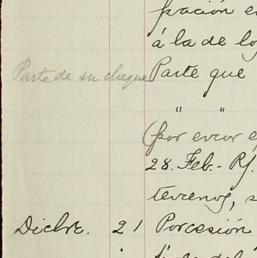 pación e
á la de lo
Parte de su cheque Parte que
" "
(por error e
28. Feb.- Rf.
terrenos, s
Dicbre. 21 Porcesión